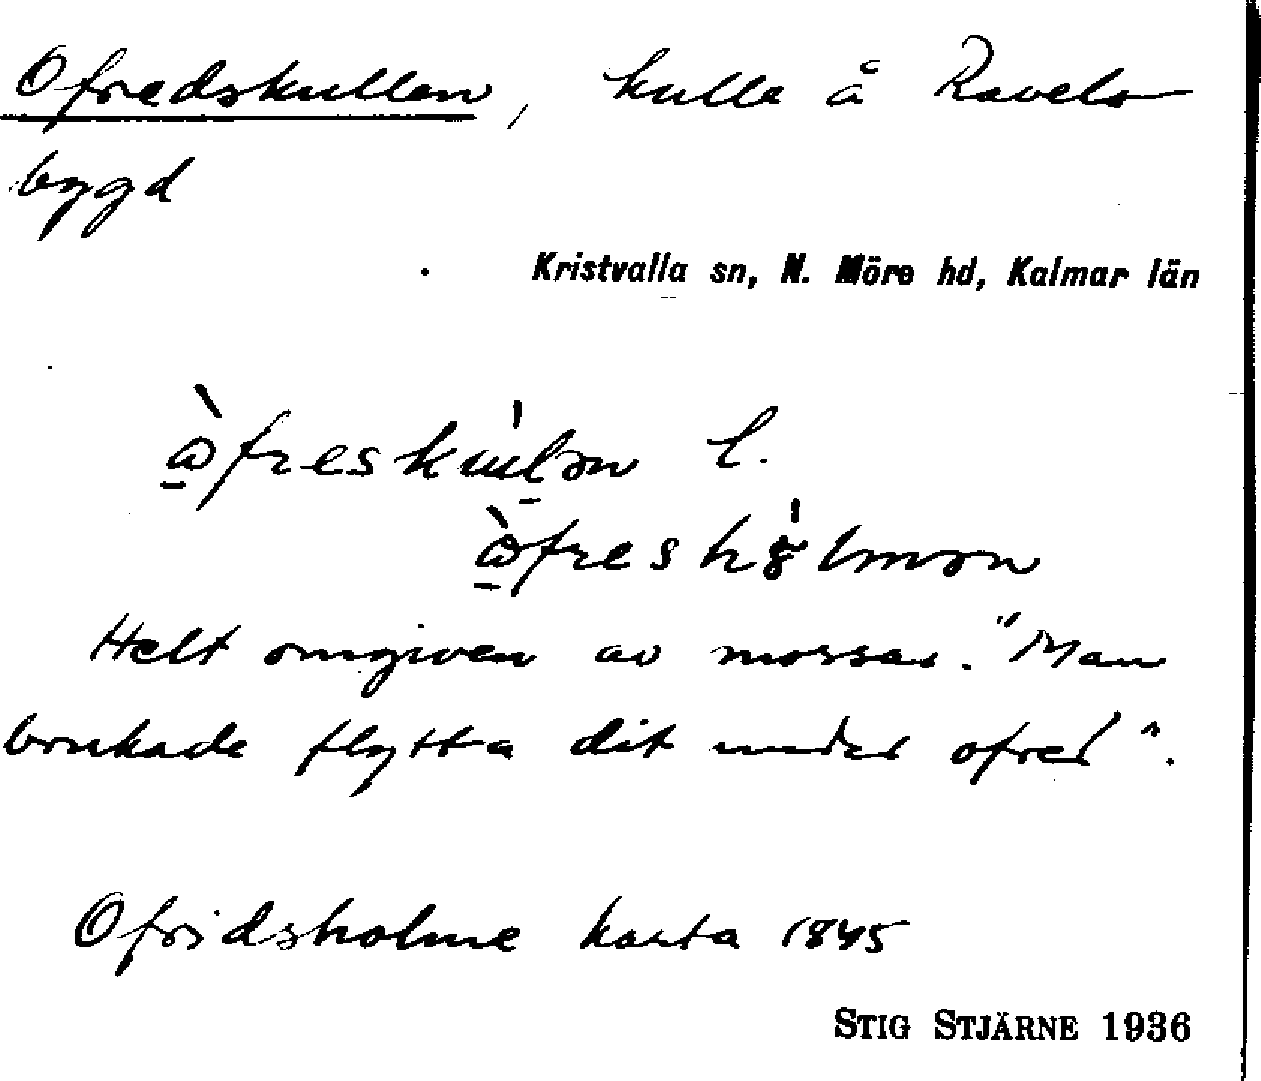 Ofredskullen, kulle å Ravels-
bygd
Kristvalla sn, N. Möre hd, Kalmar län
ɷ̀freskulən l.
ɷ̀freshòlmən
Helt omgiven av mossar. "Man
brukade flytta dit under ofred".
Ofridsholme karta 1845
STIG STJÄRNE 1936